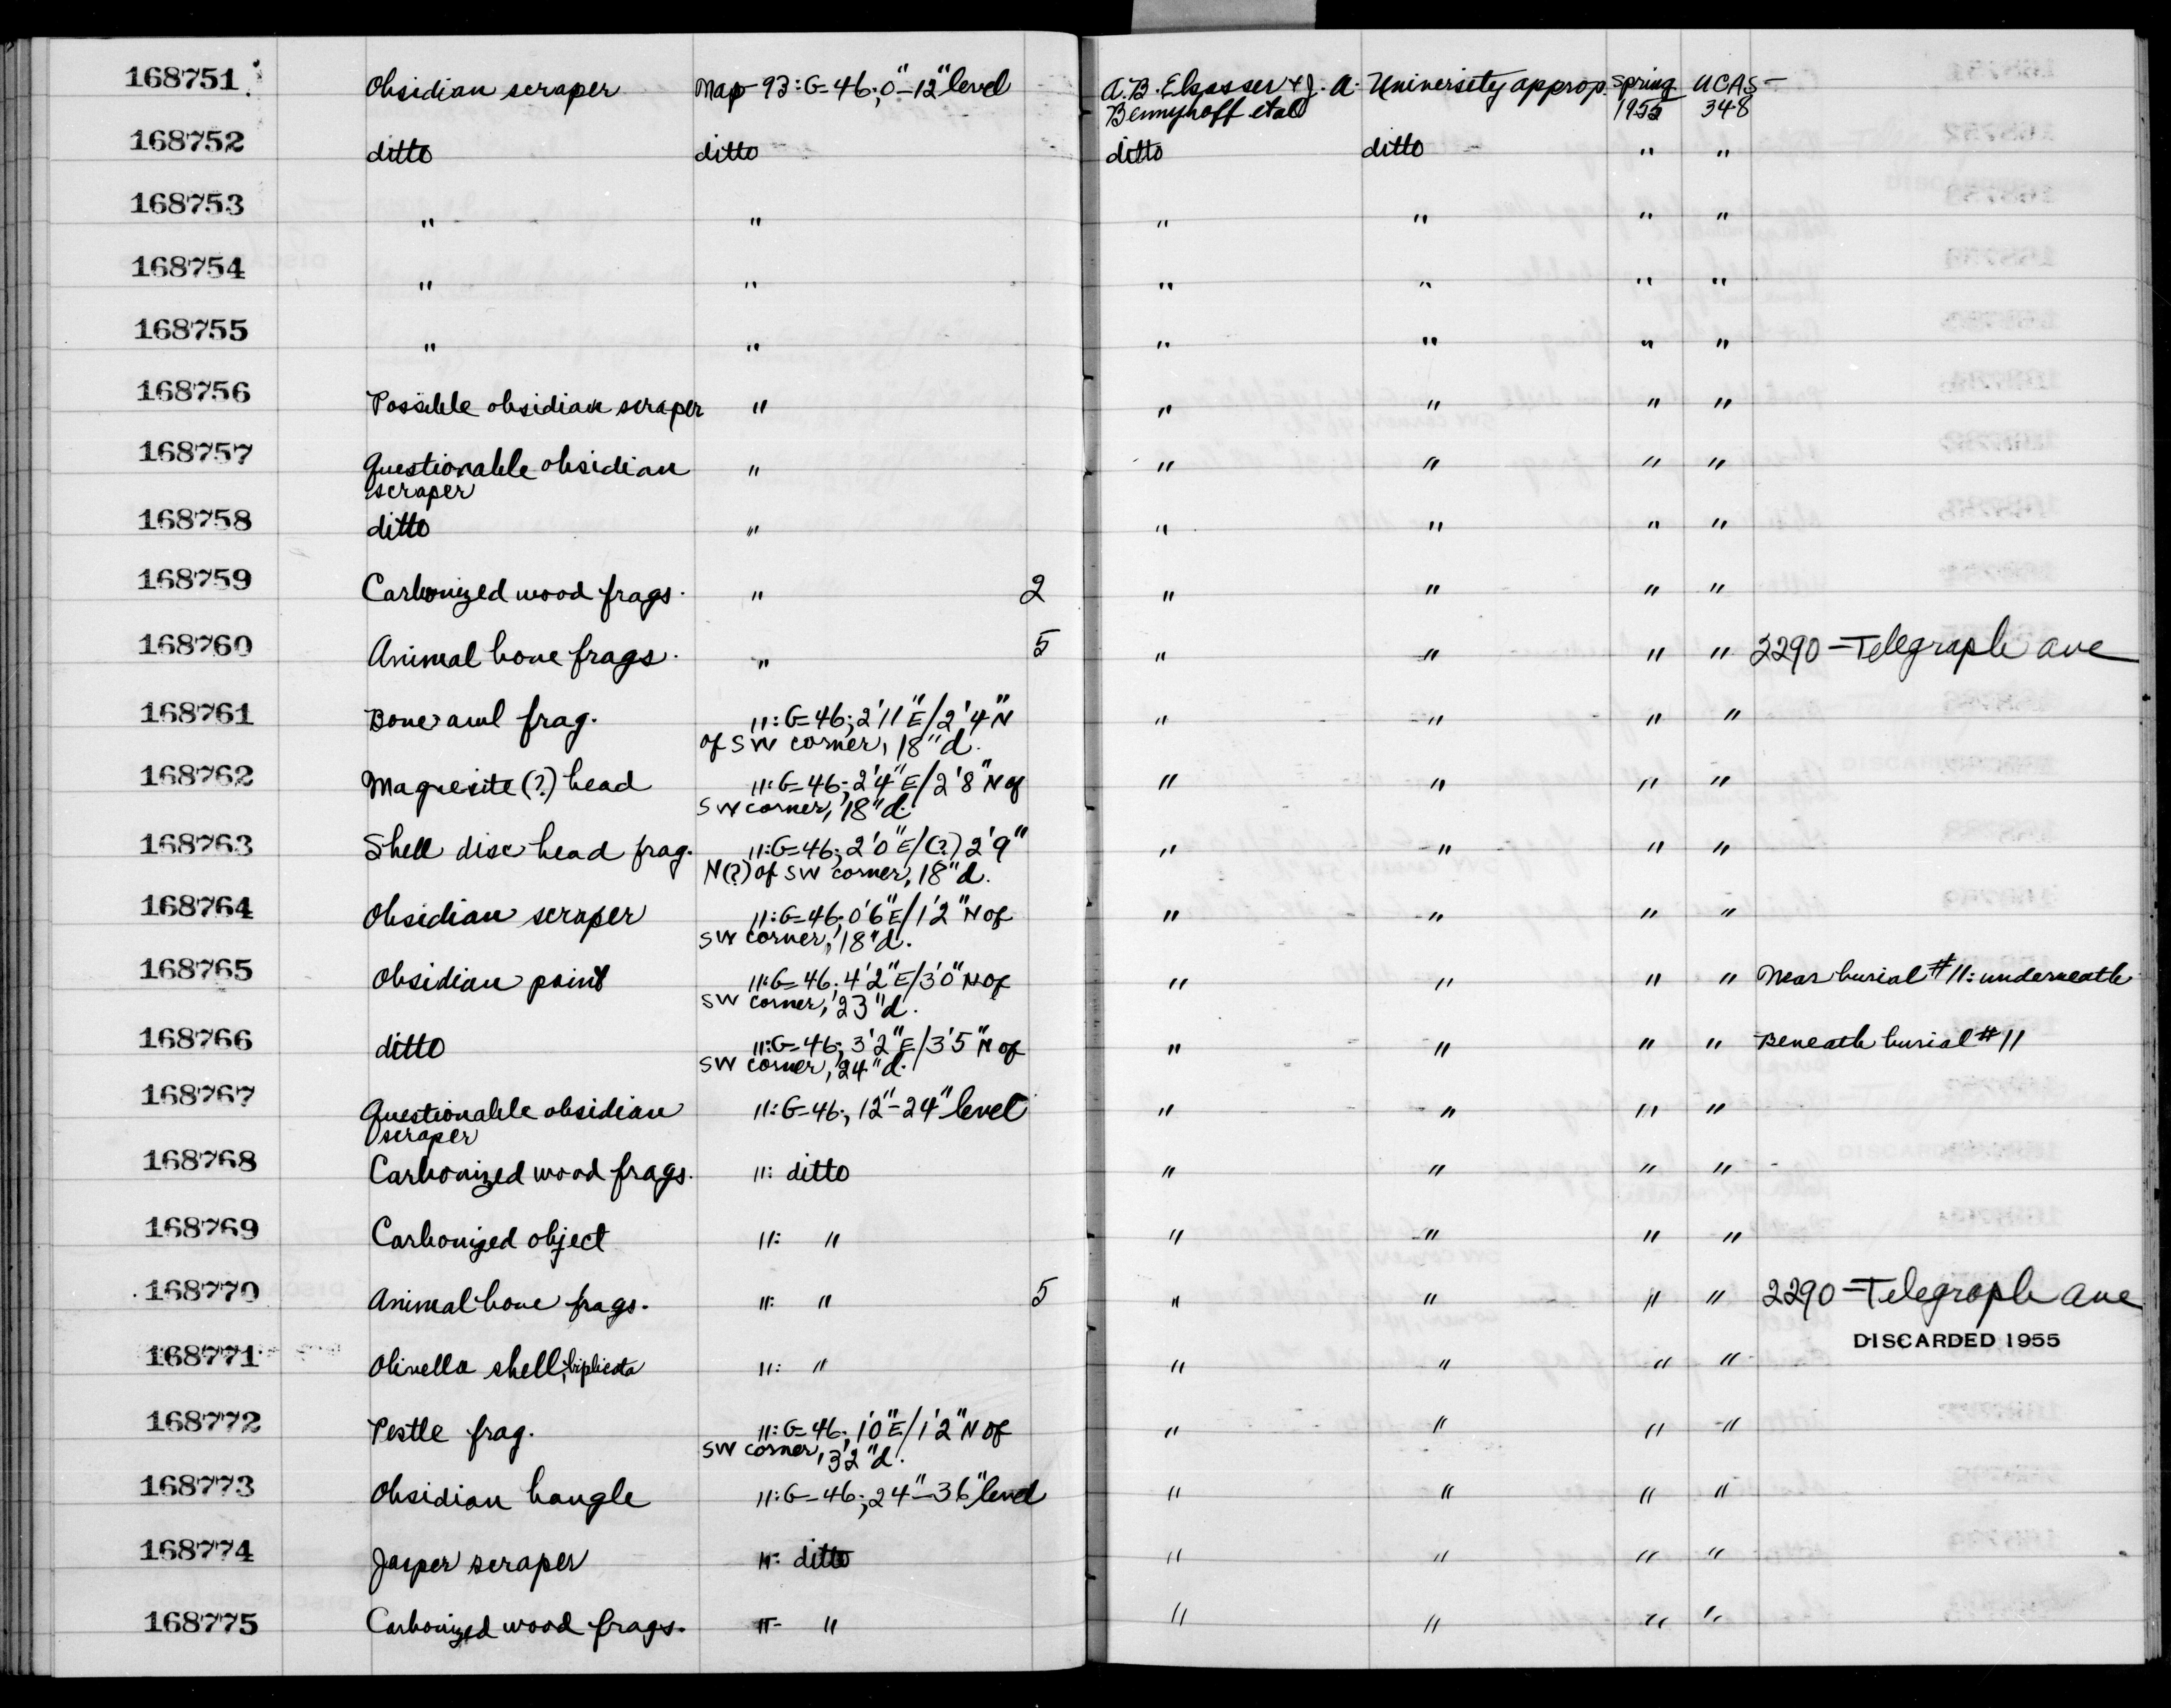 168751 Obsidian scraper Map-93: G-46; 0"-12" level A.B. Elsasser & J. A. University approp. Spring UCAS-
Bennyhoff et al 1955 348
168752 ditto ditto ditto ditto " "
168753 " " " " " "
168754 " " " " " "
168755 " " " " " "
168756 Possible obsidian scraper " " " " "
168757 Questionable obsidian " " " " "
scraper
168758 ditto " " " " "
168759 Carbonized wood frags. " 2 " " " "
168760 Animal bone frags. " 5 " " " " 2290-Telegraph ave
168761 Bone awl frag. ": G-46; 2'11"E/2'4"N " " " "
of SW corner, 18"d.
168762 Magnesite (?) bead ": G-46; 2'4"E/2'8"N of " " " "
SW corner, 18"d.
168763 Shell disc bead frag. ": G-46; 2'0"E/(?) 2'9" " " " "
N(?) of SW corner, 18"d.
168764 Obsidian scraper ": G-46; 0'6"E/1'2"N of " " " "
SW corner, 18"d.
168765 Obsidian point ": G-46; 4'2"E/3'0"N of " " " " Near burial #11: underneath
SW corner, 23"d.
168766 ditto ": G-46; 3'2"E/3'5"N of " " " " Beneath burial #11
SW corner, 24"d.
168767 Questionable obsidian ": G-46; 12"-24" level " " " "
scraper
168768 Carbonized wood frags. ": ditto " " " "
168769 Carbonized object ": " " " " "
168770 Animal bone frags. ": " 5 " " " " 2290-Telegraph ave
DISCARDED 1955
168771 Olivella shell, biplicata ": " " " " "
168772 Pestle frag. ": G-46; 1'0"E/1'2"N of " " " "
SW corner, 32"d.
168773 Obsidian bangle ": G-46; 24"-36" level " " " "
168774 Jasper scraper ": ditto " " " "
168775 Carbonized wood frags. "- " " " " "